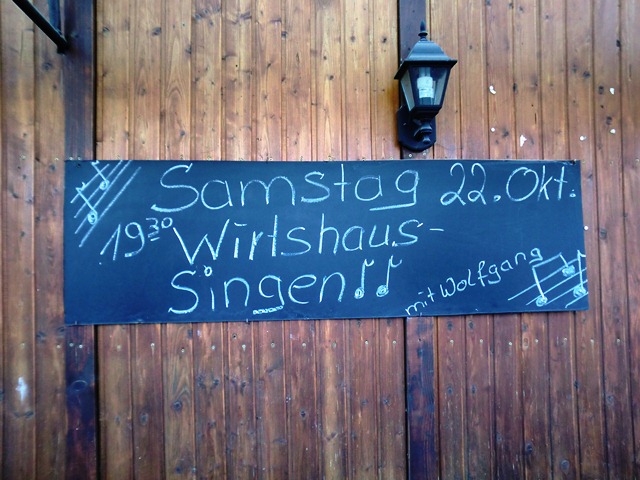 Samstag 22. Okt.
19³⁰ Wirtshaus-
Singen
mit Wolfgang